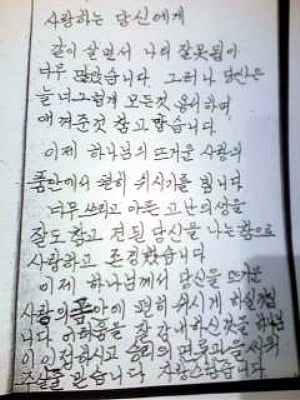 사랑하는 당신에게
같이 살면서 나의 잘못됨이
너무 많았습니다. 그러나 당신은
늘 너그럽게 모든것 용서하며
애껴준것 참 고맙습니다.
이제 하나님의 뜨거운 사랑의
품안에서 편히 쉬시기를 빕니다
너무 쓰리고 아픈 고난의 생을
잘도 참고 견딘 당신을 나는 참으로
사랑하고 존경했습니다
이제 하나님께서 당신을 뜨거운
사랑의 품안에 편히 쉬시게 하실것입
니다. 어려움을 잘 감내하신것을 하나님
이 인정하시고 승리의 면류관을 씌워
주실줄 믿습니다. 자랑스럽습니다.